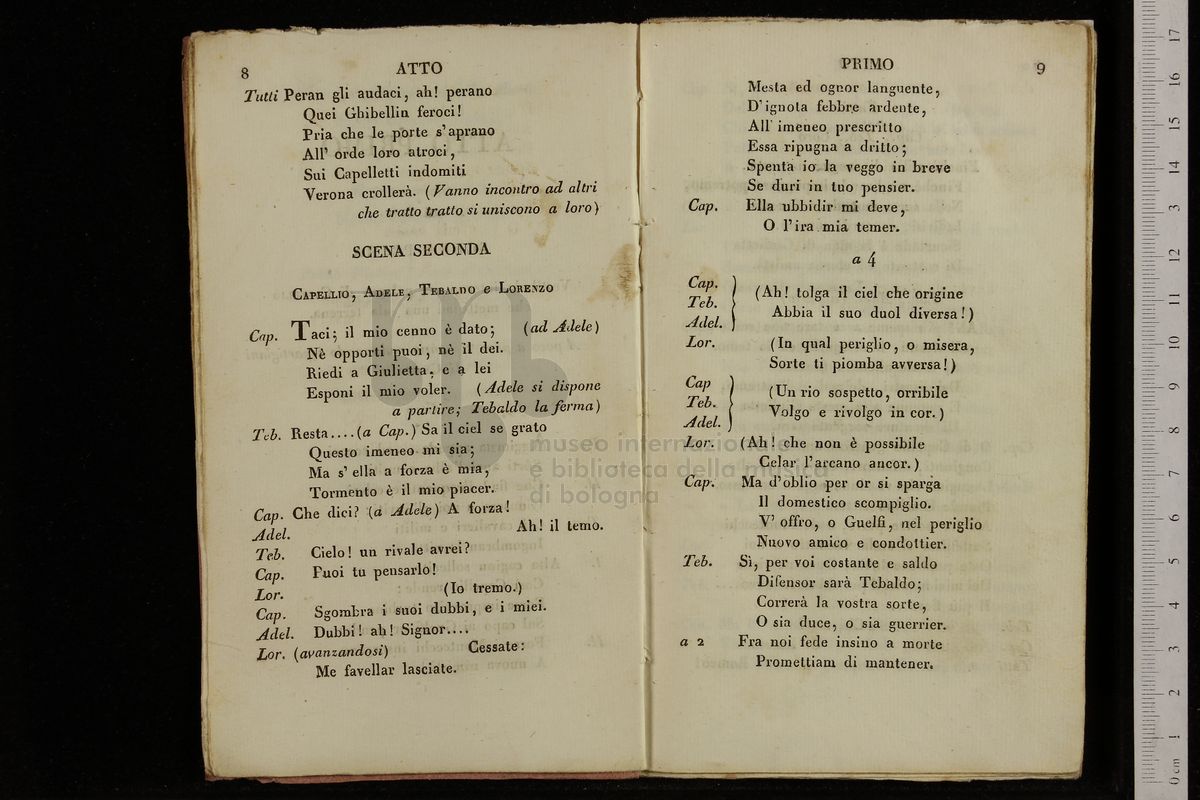 8
ATTO
Tutti Peran gli audaci, ah! perano
Quei Ghibellin feroci!
Pria che le porte s'aprano
All' orde loro atroci,
Sui Capelletti indomiti
Verona crollerà. (Vanno incontro ad altri
che tratto tratto si uniscono a loro)
SCENA SECONDA
CAPELLIO, ADELE, TEBALDO e LORENZO
Cap. Taci; il mio cenno è dato; (ad Adele)
Nè opporti puoi, nè il dei.
Riedi a Giulietta, e a lei
Esponi il mio voler. (Adele si dispone
a partire; Tebaldo la ferma)
Teb. Resta....(a Cap.) Sa il ciel se grato
Questo imeneo mi sia;
Ma s' ella a forza è mia,
Tormento è il mio piacer.
Cap. Che dici? (a Adele) A forza!
Adel. Ah! il temo.
Teb. Cielo! un rivale avrei?
Cap. Fuoi tu pensarlo!
Lor. (Io tremo.)
Cap. Sgombra i suoi dubbi, e i miei.
Adel. Dubbi! ah! Signor....
Lor. (avanzandosi) Cessate:
Me favellar lasciate.
PRIMO
9
Mesta ed ognor languente,
D'ignota febbre ardente,
All' imeneo prescritto
Essa ripugna a dritto;
Spenta io la veggo in breve
Se duri in tuo pensier.
Cap. Ella ubbidir mi deve,
O l'ira mia temer.
a 4
Cap.
Teb.
Adel.
(Ah! tolga il ciel che origine
Abbia il suo duol diversa!)
Lor. (In qual periglio, o misera,
Sorte ti piomba avversa!)
Cap
Teb.
Adel.
(Un rio sospetto, orribile
Volgo e rivolgo in cor.)
Lor. (Ah! che non è possibile
Celar l'arcano ancor.)
Cap. Ma d'oblio per or si sparga
Il domestico scompiglio.
V' offro, o Guelfi, nel periglio
Nuovo amico e condottier.
Teb. Sì, per voi costante e saldo
Difensor sarà Tebaldo;
Correrà la vostra sorte,
O sia duce, o sia guerrier.
a 2 Fra noi fede insino a morte
Promettiam di mantener.
museo internazionale
e biblioteca della musica
di bologna
0 cm 1 2 3 4 5 6 7 8 9 10 11 12 13 14 15 16 17